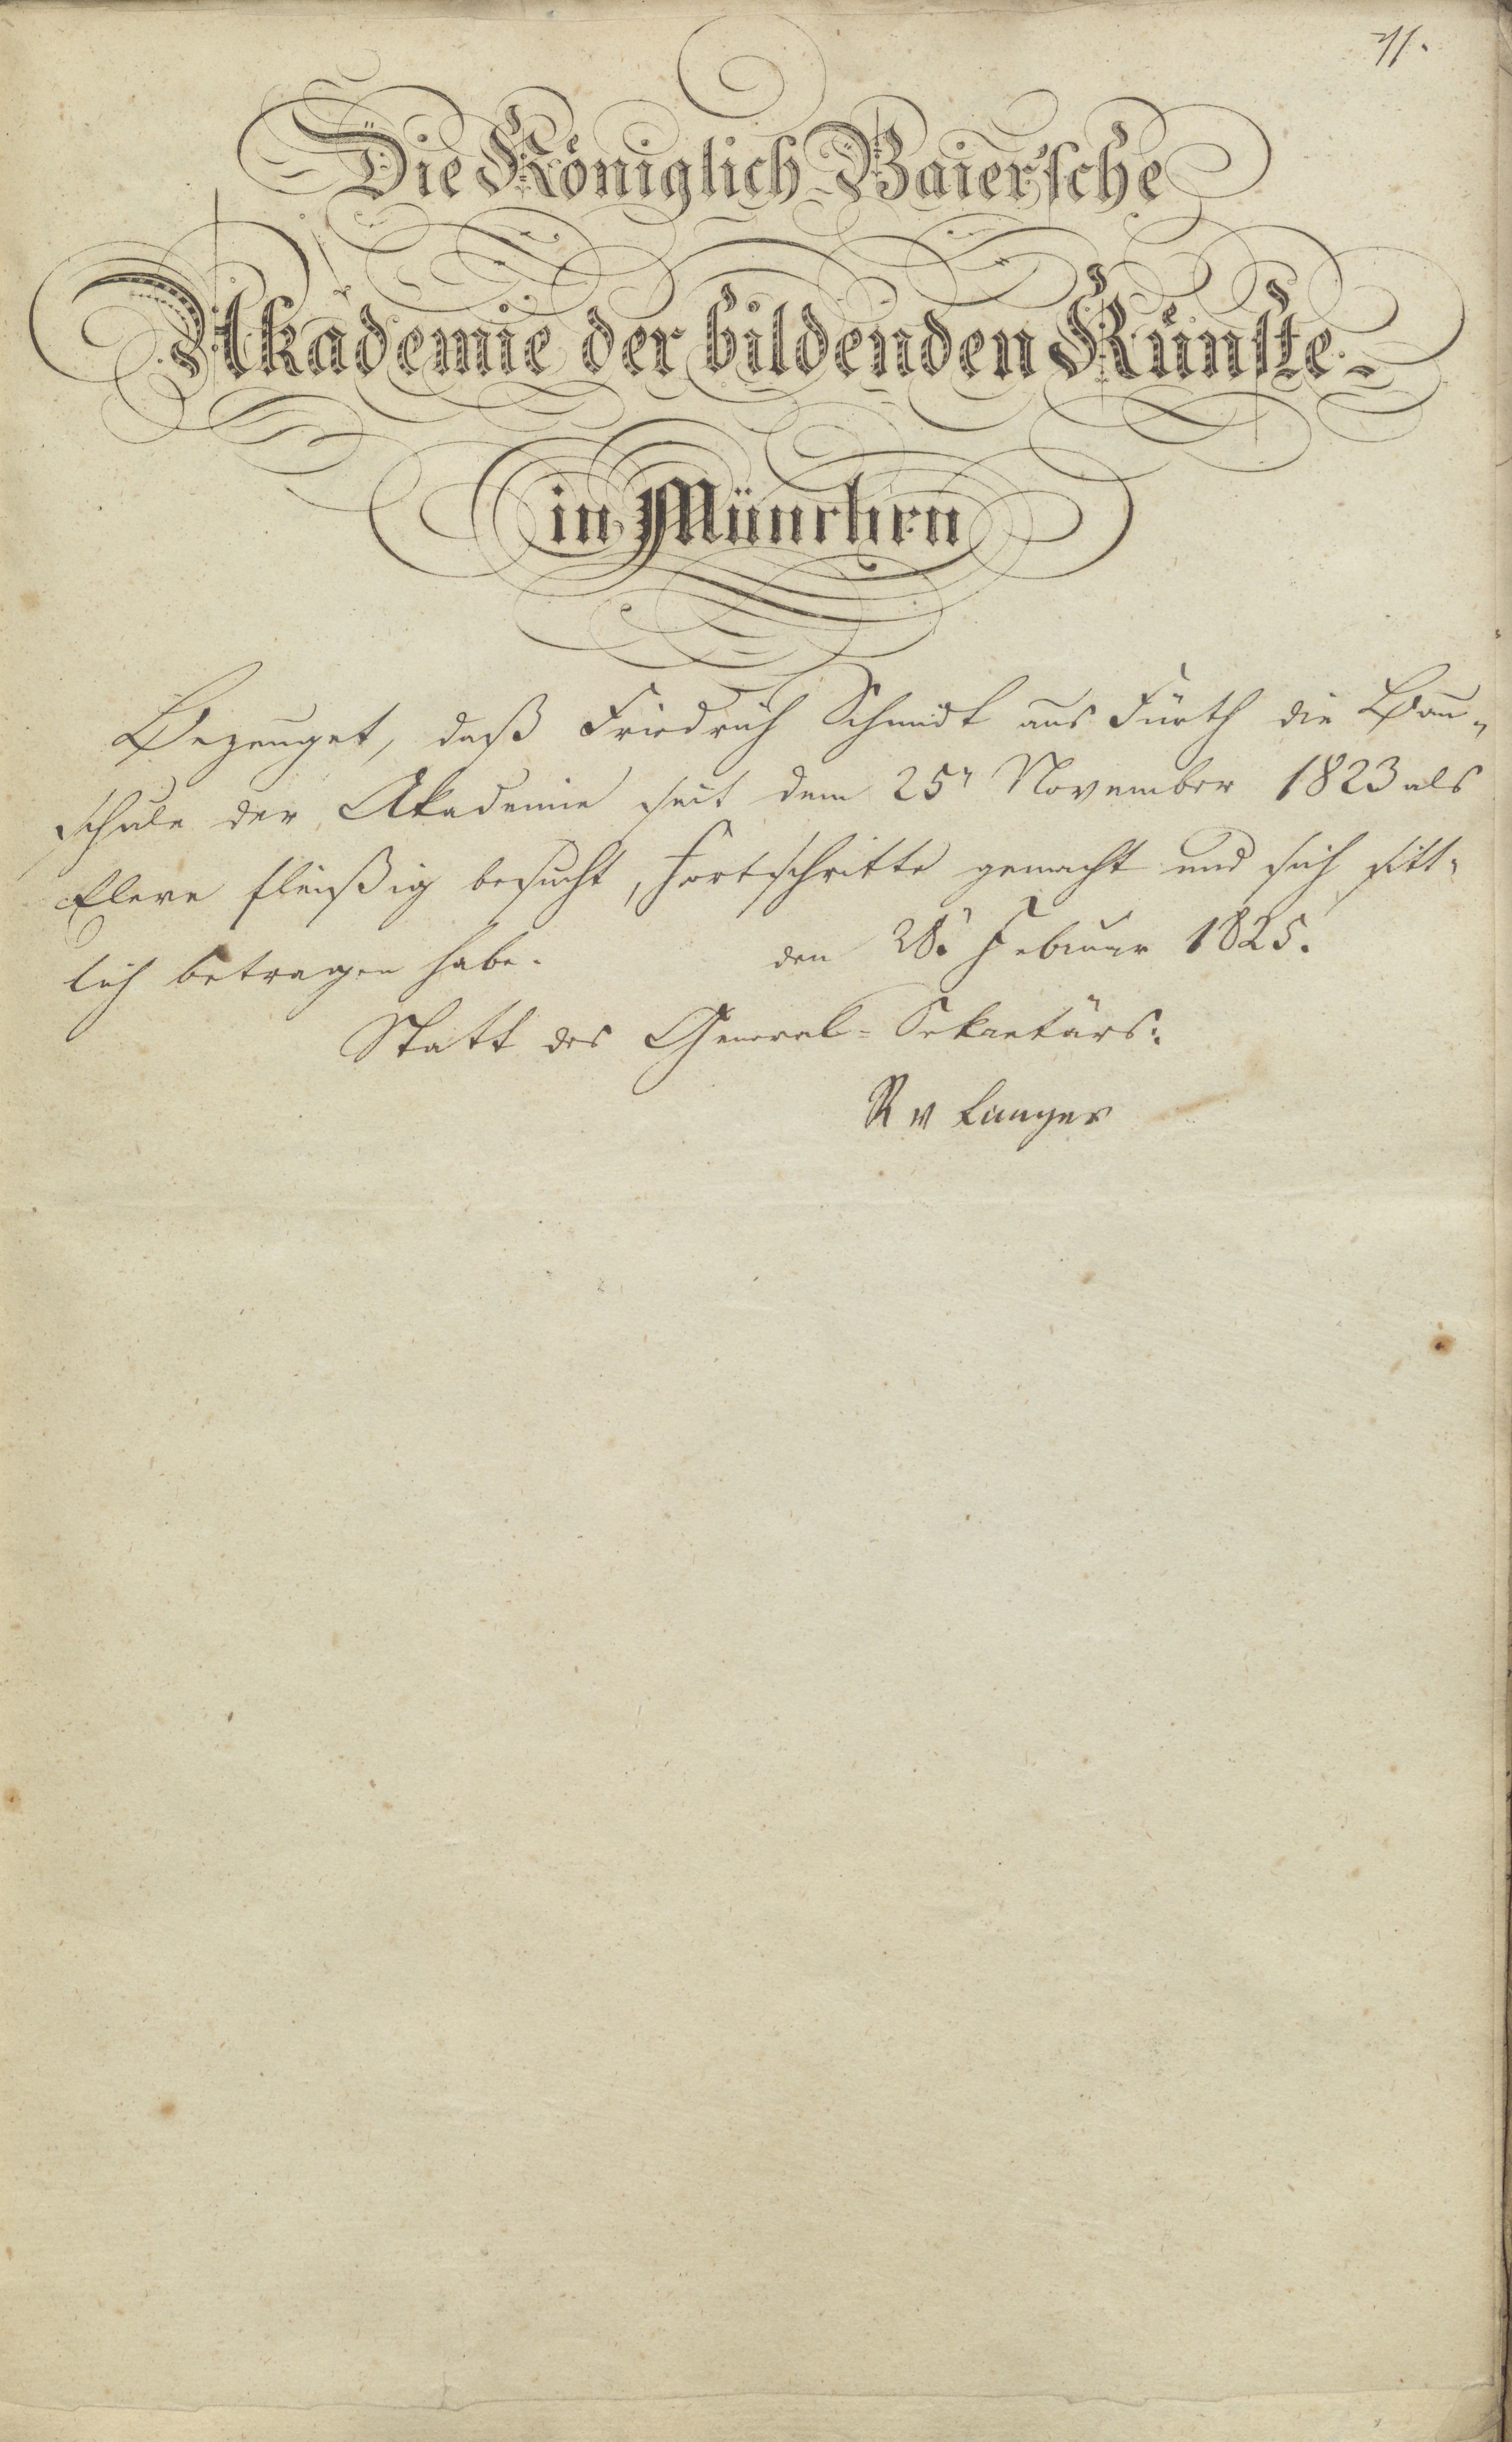 11.
Die Königlich-Baiersche
Akademie der bildenden Künste
in München
Bezeuget, daß Friedrich Schmidt aus Fürth die Bau-
schule der Akademie seit dem 25n November 1823 als
Eleve fleißig besucht, Fortschritte gemacht und sich sitt-
lich betragen habe. den 28n Februar 1825.
Statt des General-Sekretärs:
R v Langer